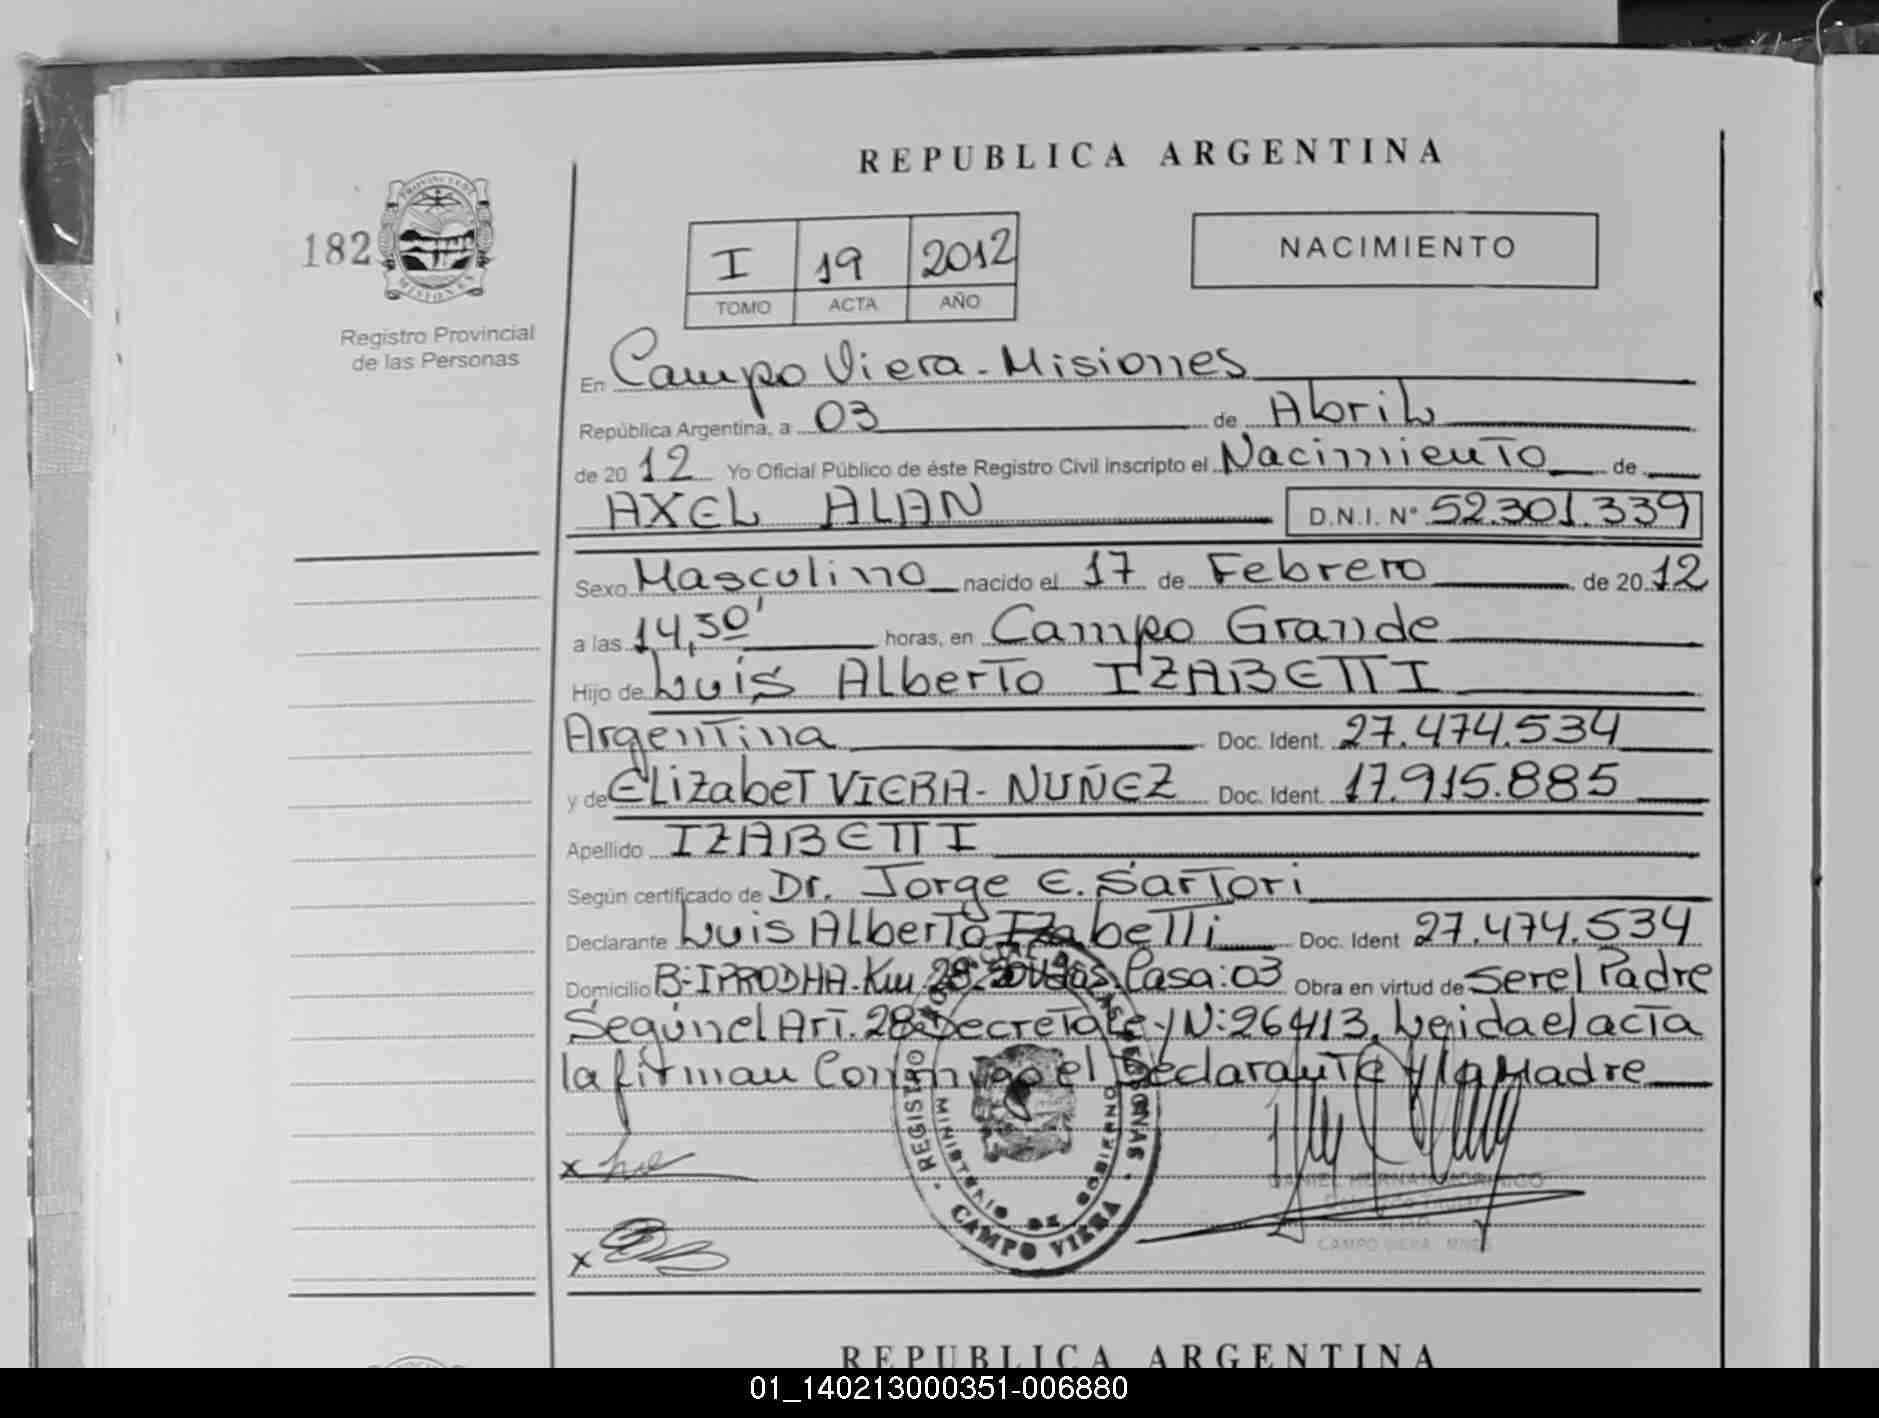 REPUBLICA ARGENTINA
182
PROVINCIA DE
MISIONES
Registro Provincial
de las Personas
I 19 2012
TOMO ACTA AÑO
NACIMIENTO
En Campo Viera - Misiones
República Argentina, a 03 de Abril
de 2012 Yo Oficial Público de éste Registro Civil inscripto el Nacimiento de
AXEL ALAN D.N.I. N° 52.301.339
Sexo Masculino nacido el 17 de Febrero de 2012
a las 14,30' horas, en Campo Grande
Hijo de Luis Alberto IZABETTI
Argentina Doc. Ident. 27.474.534
y de Elizabet VIERA - NUÑEZ Doc. Ident. 17.915.885
Apellido IZABETTI
Según certificado de Dr. Jorge E. Sartori
Declarante Luis Alberto Izabetti Doc. Ident 27.474.534
Domicilio B: IPRODHA. Km 28. Casa: 03 Obra en virtud de Ser el Padre
Según el Art. 28 Decreto Ley N: 26413. Leida el acta
la firman Conmigo el Declarante y la Madre
x
x
REGISTRO DE LAS PERSONAS
MINISTERIO DE GOBIERNO
CAMPO VIERA
DANIEL HERNAN
CAMPO VIERA MNES
REPUBLICA ARGENTINA
01_140213000351-006880